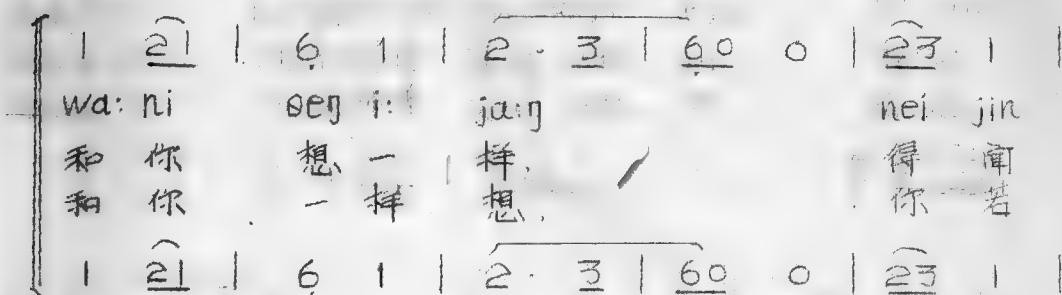 1 21 | 6 1 | 2 · 3 | 60 0 | 23 1 |
wa: ni ɵeŋ i: ja:ŋ nei jin
和 你 想 一 样, 得 闻
和 你 一 样 想, 你 若
1 21 | 6 1 | 2 · 3 | 60 0 | 23 1 |